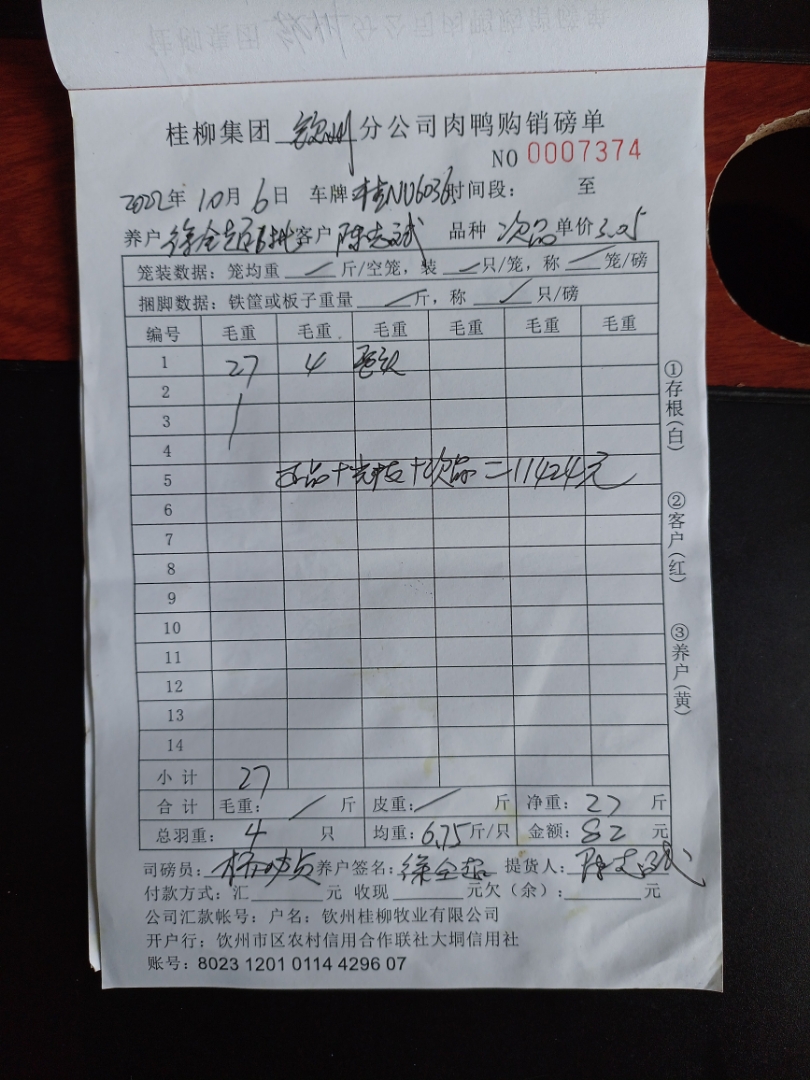 桂柳集团 钦州 分公司肉鸭购销磅单
NO 0007374
2022年 10月 6日 车牌 桂NU6036 时间段： 至
养户 徐全超 客户 陈志斌 品种 次品 单价 3.05
笼装数据：笼均重 / 斤/空笼，装 / 只/笼，称 / 笼/磅
捆脚数据：铁筐或板子重量 / 斤，称 / 只/磅
编号 毛重 毛重 毛重 毛重 毛重 毛重
1 27 4
2
3
4
5 正品+毛鸭+次品=11424元
6
7
8
9
10
11
12
13
14
小计 27
合计 毛重： / 斤 皮重： / 斤 净重：27 斤
总羽重： 4 只 均重：6.75斤/只 金额：82 元
司磅员： 养户签名：徐全超 提货人：陈志斌
付款方式：汇 元 收现 元欠（余）： 元
公司汇款帐号：户名：钦州桂柳牧业有限公司
开户行：钦州市区农村信用合作联社大垌信用社
账号：8023 1201 0114 4296 07
①存根（白）
②客户（红）
③养户（黄）